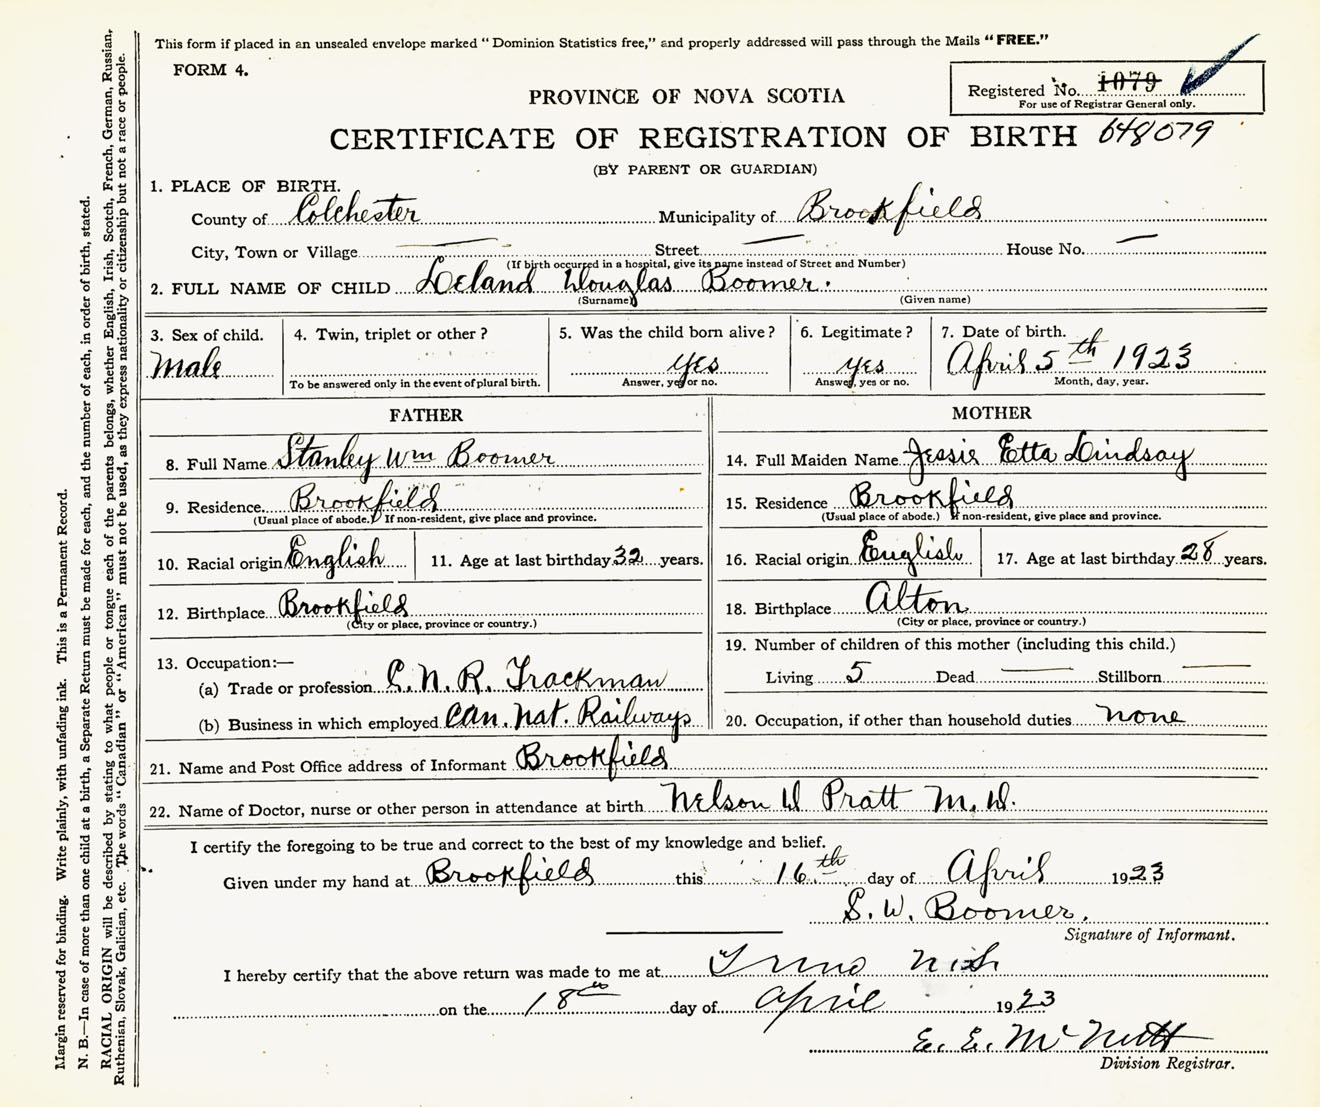 This form if placed in an unsealed envelope marked "Dominion Statistics free," and properly addressed will pass through the Mails "FREE."
FORM 4.
Registered No. 1079
For use of Registrar General only.
PROVINCE OF NOVA SCOTIA
CERTIFICATE OF REGISTRATION OF BIRTH 648079
(BY PARENT OR GUARDIAN)
1. PLACE OF BIRTH.
County of Colchester Municipality of Brookfield
City, Town or Village — Street — House No. —
(If birth occurred in a hospital, give its name instead of Street and Number)
2. FULL NAME OF CHILD Leland Douglas Boomer.
(Surname) (Given name)
3. Sex of child. Male
4. Twin, triplet or other?
To be answered only in the event of plural birth.
5. Was the child born alive? yes
Answer, yes or no.
6. Legitimate? yes
Answer, yes or no.
7. Date of birth. April 5th 1923
Month, day, year.
FATHER
8. Full Name Stanley Wm Boomer
9. Residence Brookfield
(Usual place of abode.) If non-resident, give place and province.
10. Racial origin English
11. Age at last birthday 32 years.
12. Birthplace Brookfield
(City or place, province or country.)
13. Occupation:—
(a) Trade or profession C.N.R. Trackman
(b) Business in which employed Can. Nat. Railways
MOTHER
14. Full Maiden Name Jessie Etta Lindsay
15. Residence Brookfield
(Usual place of abode.) If non-resident, give place and province.
16. Racial origin English
17. Age at last birthday 28 years.
18. Birthplace Alton
(City or place, province or country.)
19. Number of children of this mother (including this child.)
Living 5 Dead — Stillborn —
20. Occupation, if other than household duties none
21. Name and Post Office address of Informant Brookfield
22. Name of Doctor, nurse or other person in attendance at birth Nelson D Pratt M.D.
I certify the foregoing to be true and correct to the best of my knowledge and belief.
Given under my hand at Brookfield this 16th day of April 1923
S. W. Boomer.
Signature of Informant.
I hereby certify that the above return was made to me at
on the 18th day of April 1923
E. E. McNutt
Division Registrar.
Margin reserved for binding. Write plainly, with unfading ink. This is a Permanent Record.
N. B.—In case of more than one child at a birth, a Separate Return must be made for each, and the number of each, in order of birth, stated.
RACIAL ORIGIN will be described by stating to what people or tongue each of the parents belongs, whether English, Irish, Scotch, French, German, Russian,
Ruthenian, Slovak, Galician, etc. The words "Canadian" or "American" must not be used, as they express nationality or citizenship but not a race or people.